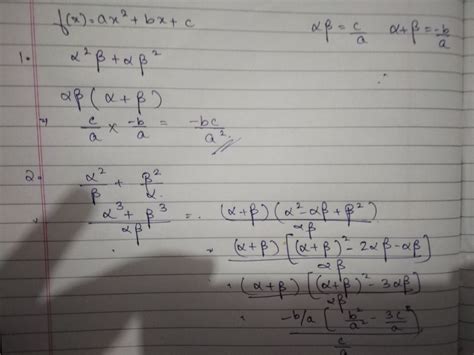 f(x) = ax² + bx + c
αβ = c/a   α+β = -b/a
1. α²β + αβ²
αβ (α + β)
c/a × -b/a = -bc/a²
2. α²/β + β²/α
α³ + β³/αβ = (α+β)(α²-αβ+β²)/αβ
(α+β)[(α+β)² - 2αβ - αβ]/αβ
(α+β)[(α+β)² - 3αβ]/αβ
-b/a (b²/a² - 3c/a)
c/a